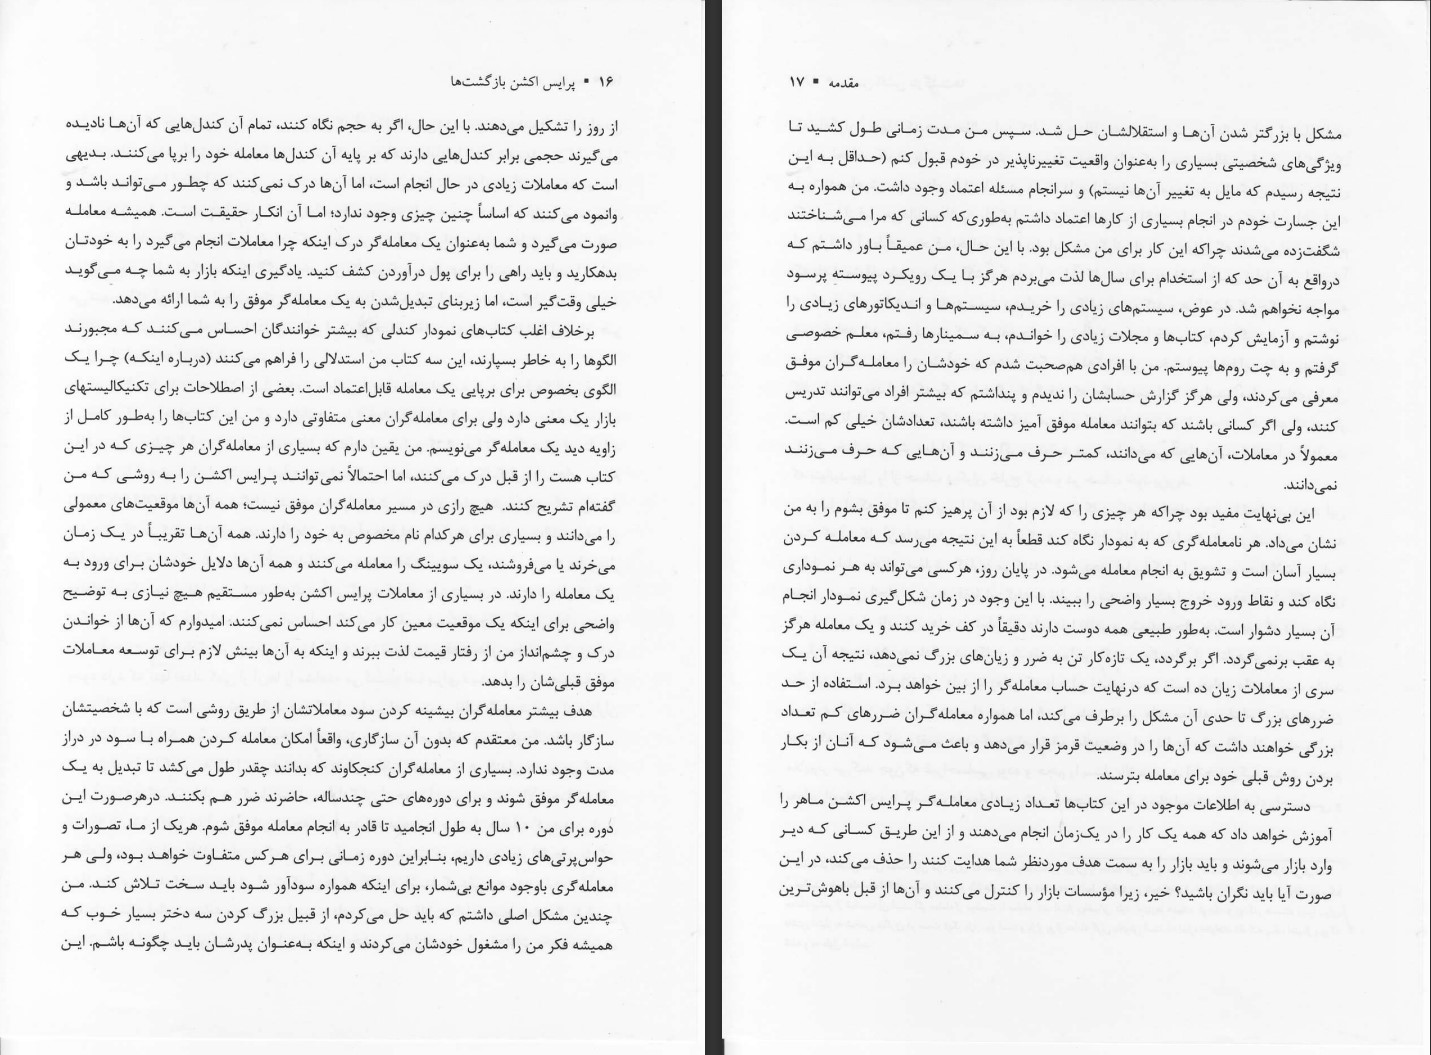 ۱۶ ▪ پرایس اکشن بازگشت‌ها
از روز را تشکیل می‌دهند. با این حال، اگر به حجم نگاه کنند، تمام آن کندل‌هایی که آن‌ها نادیده
می‌گیرند حجمی برابر کندل‌هایی دارند که بر پایه آن کندل‌ها معامله خود را برپا می‌کنند. بدیهی
است که معاملات زیادی در حال انجام است، اما آن‌ها درک نمی‌کنند که چطور می‌تواند باشد و
وانمود می‌کنند که اساساً چنین چیزی وجود ندارد؛ اما آن انکار حقیقت است. همیشه معامله
صورت می‌گیرد و شما به‌عنوان یک معامله‌گر درک اینکه چرا معاملات انجام می‌گیرد را به خودتان
بدهکارید و باید راهی را برای پول درآوردن کشف کنید. یادگیری اینکه بازار به شما چه می‌گوید
خیلی وقت‌گیر است، اما زیربنای تبدیل‌شدن به یک معامله‌گر موفق را به شما ارائه می‌دهد.
برخلاف اغلب کتاب‌های نمودار کندلی که بیشتر خوانندگان احساس می‌کنند که مجبورند
الگوها را به خاطر بسپارند، این سه کتاب من استدلالی را فراهم می‌کنند (درباره اینکه) چرا یک
الگوی بخصوص برای برپایی یک معامله قابل‌اعتماد است. بعضی از اصطلاحات برای تکنیکالیستهای
بازار یک معنی دارد ولی برای معامله‌گران معنی متفاوتی دارد و من این کتاب‌ها را به‌طور کامل از
زاویه دید یک معامله‌گر می‌نویسم. من یقین دارم که بسیاری از معامله‌گران هر چیزی که در این
کتاب هست را از قبل درک می‌کنند، اما احتمالاً نمی‌توانند پرایس اکشن را به روشی که من
گفته‌ام تشریح کنند. هیچ رازی در مسیر معامله‌گران موفق نیست؛ همه آن‌ها موقعیت‌های معمولی
را می‌دانند و بسیاری برای هرکدام نام مخصوص به خود را دارند. همه آن‌ها تقریباً در یک زمان
می‌خرند یا می‌فروشند، یک سویینگ را معامله می‌کنند و همه آن‌ها دلایل خودشان برای ورود به
یک معامله را دارند. در بسیاری از معاملات پرایس اکشن به‌طور مستقیم هیچ نیازی به توضیح
واضحی برای اینکه یک موقعیت معین کار می‌کند احساس نمی‌کنند. امیدوارم که آن‌ها از خواندن
درک و چشم‌انداز من از رفتار قیمت لذت ببرند و اینکه به آن‌ها بینش لازم برای توسعه معاملات
موفق قبلی‌شان را بدهد.
هدف بیشتر معامله‌گران بیشینه کردن سود معاملاتشان از طریق روشی است که با شخصیتشان
سازگار باشد. من معتقدم که بدون آن سازگاری، واقعاً امکان معامله کردن همراه با سود در دراز
مدت وجود ندارد. بسیاری از معامله‌گران کنجکاوند که بدانند چقدر طول می‌کشد تا تبدیل به یک
معامله‌گر موفق شوند و برای دوره‌های حتی چندساله، حاضرند ضرر هم بکنند. درهرصورت این
دوره برای من ۱۰ سال به طول انجامید تا قادر به انجام معامله موفق شوم. هریک از ما، تصورات و
حواس‌پرتی‌های زیادی داریم، بنابراین دوره زمانی برای هرکس متفاوت خواهد بود، ولی هر
معامله‌گری باوجود موانع بی‌شمار، برای اینکه همواره سودآور شود باید سخت تلاش کند. من
چندین مشکل اصلی داشتم که باید حل می‌کردم، از قبیل بزرگ کردن سه دختر بسیار خوب که
همیشه فکر من را مشغول خودشان می‌کردند و اینکه به‌عنوان پدرشان باید چگونه باشم. این
مقدمه ▪ ۱۷
مشکل با بزرگتر شدن آن‌ها و استقلالشان حل شد. سپس من مدت زمانی طول کشید تا
ویژگی‌های شخصیتی بسیاری را به‌عنوان واقعیت تغییرناپذیر در خودم قبول کنم (حداقل به این
نتیجه رسیدم که مایل به تغییر آن‌ها نیستم) و سرانجام مسئله اعتماد وجود داشت. من همواره به
این جسارت خودم در انجام بسیاری از کارها اعتماد داشتم به‌طوری‌که کسانی که مرا می‌شناختند
شگفت‌زده می‌شدند چراکه این کار برای من مشکل بود. با این حال، من عمیقاً باور داشتم که
درواقع به آن حد که از استخدام برای سال‌ها لذت می‌بردم هرگز با یک رویکرد پیوسته پرسود
مواجه نخواهم شد. در عوض، سیستم‌های زیادی را خریدم، سیستم‌ها و اندیکاتورهای زیادی را
نوشتم و آزمایش کردم، کتاب‌ها و مجلات زیادی را خواندم، به سمینارها رفتم، معلم خصوصی
گرفتم و به چت روم‌ها پیوستم. من با افرادی هم‌صحبت شدم که خودشان را معامله‌گران موفق
معرفی می‌کردند، ولی هرگز گزارش حسابشان را ندیدم و پنداشتم که بیشتر افراد می‌توانند تدریس
کنند، ولی اگر کسانی باشند که بتوانند معامله موفق آمیز داشته باشند، تعدادشان خیلی کم است.
معمولاً در معاملات، آن‌هایی که می‌دانند، کمتر حرف می‌زنند و آن‌هایی که حرف می‌زنند
نمی‌دانند.
این بی‌نهایت مفید بود چراکه هر چیزی را که لازم بود از آن پرهیز کنم تا موفق بشوم را به من
نشان می‌داد. هر نامعامله‌گری که به نمودار نگاه کند قطعاً به این نتیجه می‌رسد که معامله کردن
بسیار آسان است و تشویق به انجام معامله می‌شود. در پایان روز، هرکسی می‌تواند به هر نموداری
نگاه کند و نقاط ورود خروج بسیار واضحی را ببیند. با این وجود در زمان شکل‌گیری نمودار انجام
آن بسیار دشوار است. به‌طور طبیعی همه دوست دارند دقیقاً در کف خرید کنند و یک معامله هرگز
به عقب برنمی‌گردد. اگر برگردد، یک تازه‌کار تن به ضرر و زیان‌های بزرگ نمی‌دهد، نتیجه آن یک
سری از معاملات زیان ده است که درنهایت حساب معامله‌گر را از بین خواهد برد. استفاده از حد
ضررهای بزرگ تا حدی آن مشکل را برطرف می‌کند، اما همواره معامله‌گران ضررهای کم تعداد
بزرگی خواهند داشت که آن‌ها را در وضعیت قرمز قرار می‌دهد و باعث می‌شود که آنان از بکار
بردن روش قبلی خود برای معامله بترسند.
دسترسی به اطلاعات موجود در این کتاب‌ها تعداد زیادی معامله‌گر پرایس اکشن ماهر را
آموزش خواهد داد که همه یک کار را در یک‌زمان انجام می‌دهند و از این طریق کسانی که دیر
وارد بازار می‌شوند و باید بازار را به سمت هدف موردنظر شما هدایت کنند را حذف می‌کند، در این
صورت آیا باید نگران باشید؟ خیر، زیرا مؤسسات بازار را کنترل می‌کنند و آن‌ها از قبل باهوش‌ترین